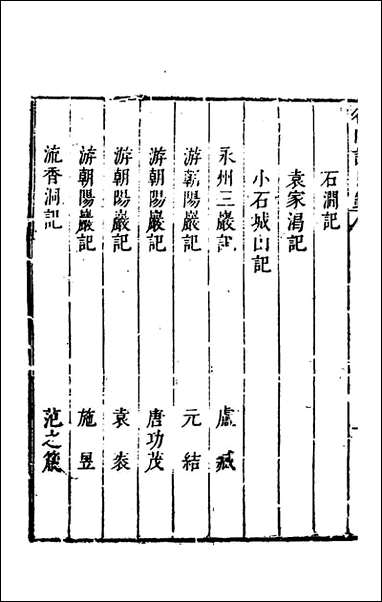 石澗記
袁家渴記
小石城山記
永州三巖記 盧臧
游朝陽巖記 元結
游朝陽巖記 唐功茂
游朝陽巖記 袁袠
游朝陽巖記 施昱
流香洞記 范之箴